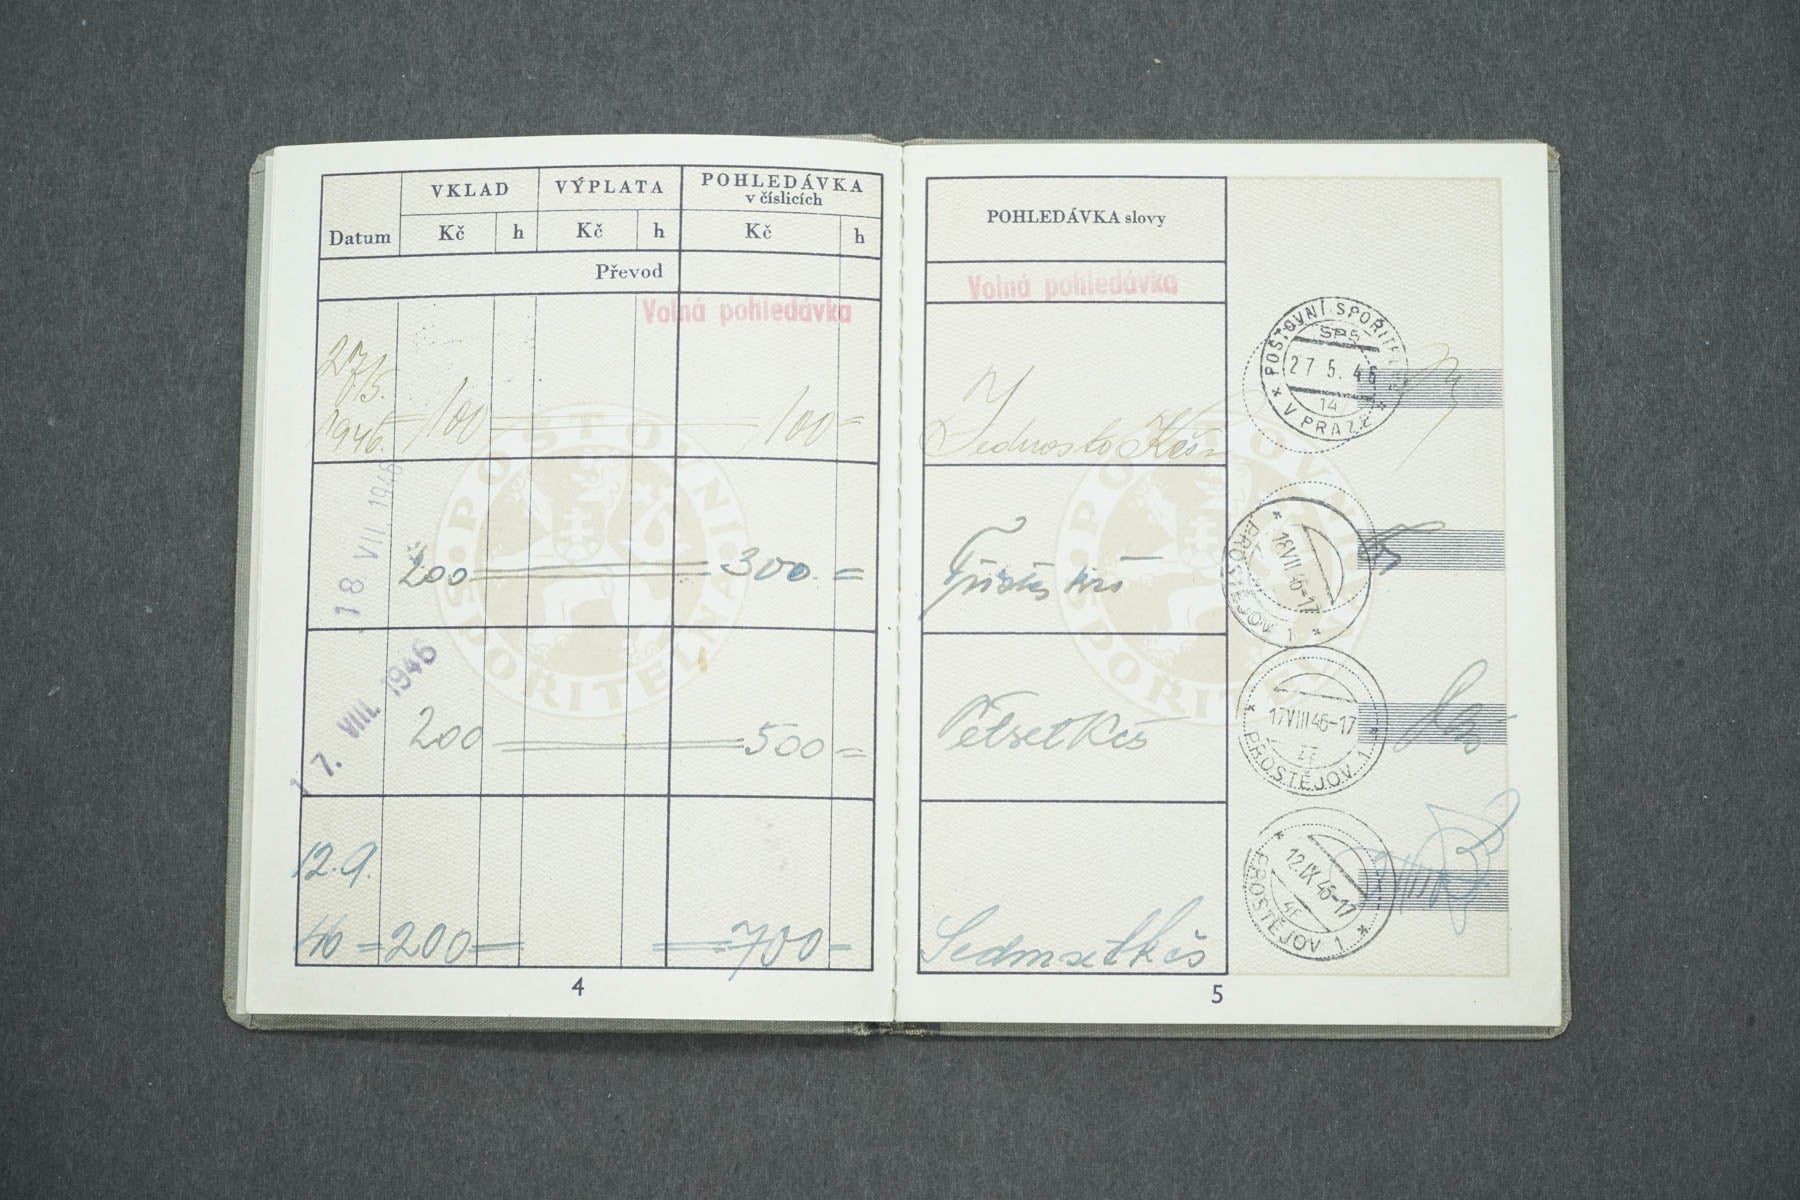 Datum
VKLAD
VÝPLATA
POHLEDÁVKA
v číslicích
Kč h Kč h Kč h
Převod
Volná pohledávka
27/5.
1946. 100 100
18 VII. 1946
200 300
17. VIII. 1946
200 500
12.9.
46 200 700
4
POHLEDÁVKA slovy
Volná pohledávka
Jednosto Kčs
Třista
Pětset Kčs
Sedmset Kčs
POŠTOVNÍ SPOŘITELNA
SPS
27 5. 46
14
V PRAZE
18 VII 46-17
PROSTĚJOV 1
17 VIII 46-17
4F
PROSTĚJOV 1
12. IX 46-17
4F
PROSTĚJOV 1
POŠTOVNÍ SPOŘITELNA
5